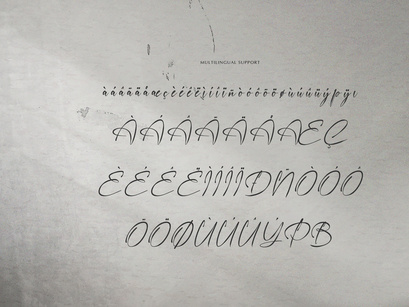 MULTILINGUAL SUPPORT
àáâãäåæçèéêëìíîïñòóôõöøùúûüýþÿı
ÀÁÂÃÄÅÆÇ
ÈÉÊËÌÍÎÏÐÑÒÓÔ
ÕÖØÙÚÛÜÝÞß